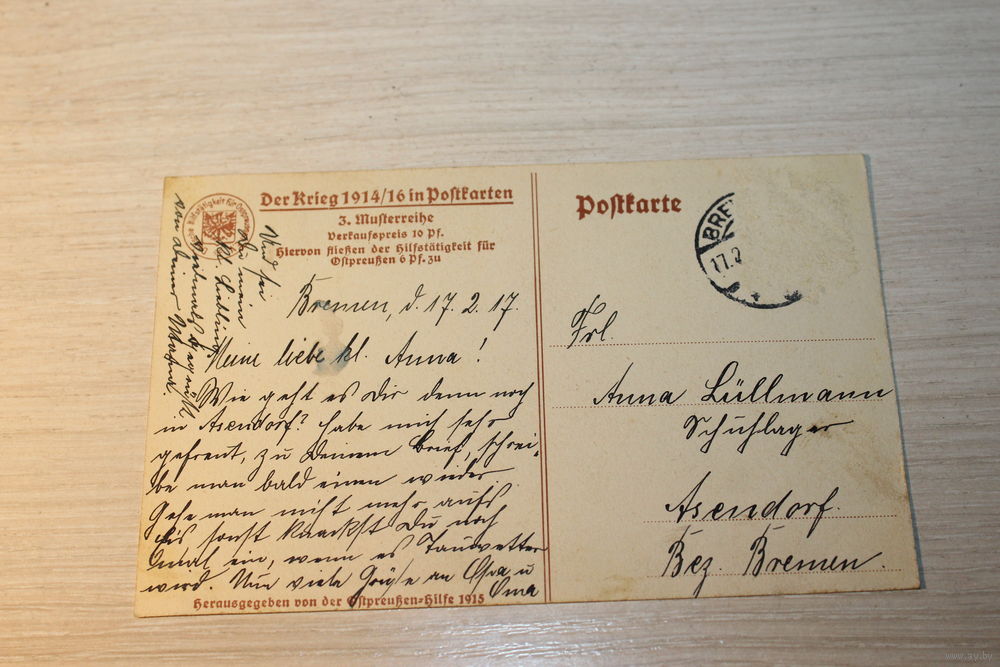 Der Krieg 1914/16 in Postkarten
3. Musterreihe
Verkaufspreis 10 Pf.
Hiervon fließen der Hilfstätigkeit für
Ostpreußen 6 Pf. zu
Bremen, d. 17. 2. 17.
Meine liebe kl. Anna!
Wie geht es Dir denn noch
in Asendorf? habe mich sehr
gefreut, zu Deinem Brief, schrei-
be man bald einen wieder.
Gehe man nicht mehr aufs
Eis sonst knackst Du noch
mal ein, wenn es Tauwetter
wird. Nun viele Grüße an Opa u
Oma
Und sei
Du mein
kl. Liebling
vielmals gegrüßt
von Deiner Mama.
Herausgegeben von der Ostpreußen-Hilfe 1915
Postkarte
BRE
17.2
Frl.
Anna Lüllmann
Schuhlager
Asendorf.
Bez. Bremen.
www.ay.by